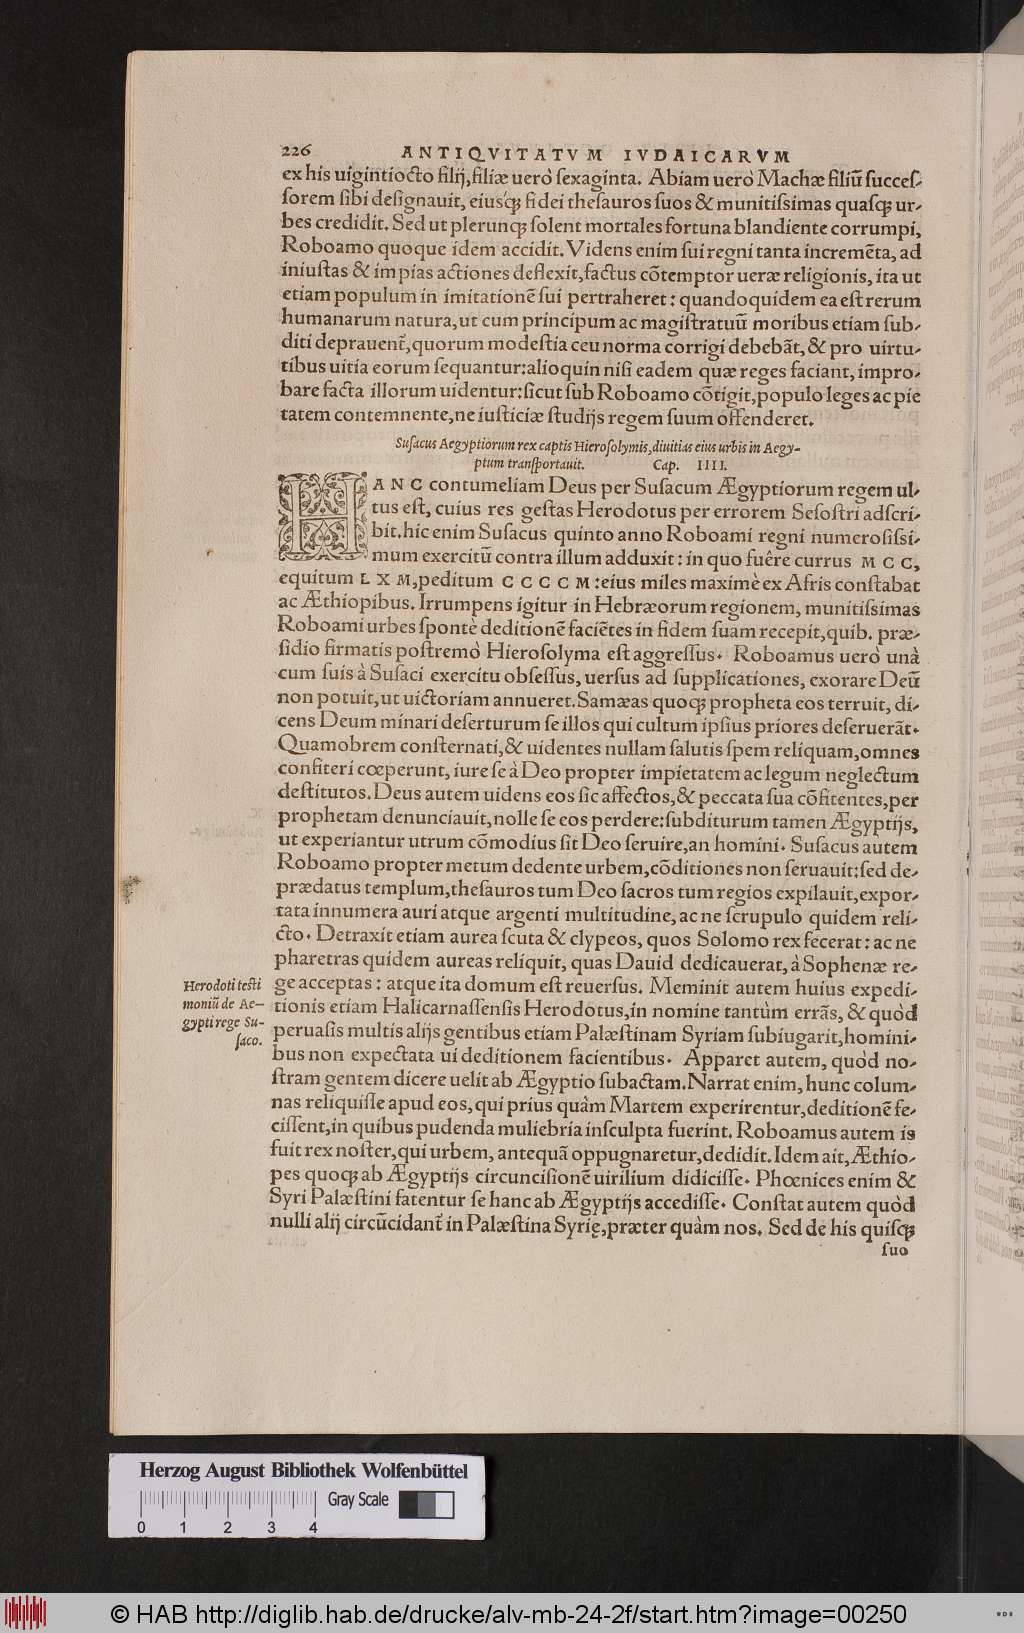 226 ANTIQVITATVM IVDAICARVM
ex his uigintiocto filij, filiæ uerò ſexaginta. Abiam uerò Machæ filiũ ſucceſ-
ſorem ſibi deſignauit, eiusq́ꝫ fidei theſauros ſuos & munitiſsimas quaſqꝫ ur-
bes credidit. Sed ut plerunqꝫ ſolent mortales fortuna blandiente corrumpi,
Roboamo quoque idem accidit. Videns enim ſui regni tanta incremẽta, ad
iniuſtas & impias actiones deflexit, factus cõtemptor ueræ religionis, ita ut
etiam populum in imitationẽ ſui pertraheret: quandoquidem ea eſt rerum
humanarum natura, ut cum principum ac magiſtratuũ moribus etiam ſub-
diti deprauent̃, quorum modeſtia ceu norma corrigi debebãt, & pro uirtu-
tibus uitia eorum ſequantur: alioquin niſi eadem quæ reges faciant, impro-
bare facta illorum uidentur: ſicut ſub Roboamo cõtigit, populo leges ac pie
tatem contemnente, ne iuſticiæ ſtudijs regem ſuum offenderet.
Suſacus Aegyptiorum rex captis Hieroſolymis, diuitias eius urbis in Aegy-
ptum tranſportauit. Cap. IIII.
HANC contumeliam Deus per Suſacum Ægyptiorum regem ul-
tus eſt, cuius res geſtas Herodotus per errorem Seſoſtri adſcri-
bit. hic enim Suſacus quinto anno Roboami regni numeroſiſsi-
mum exercitũ contra illum adduxit: in quo fuêre currus MCC,
equitum LXM, peditum CCCCM: eius miles maximè ex Afris conſtabat
ac Æthiopibus. Irrumpens igitur in Hebræorum regionem, munitiſsimas
Roboami urbes ſpontè deditionẽ faciẽtes in fidem ſuam recepit, quib. præ-
ſidio firmatis poſtremò Hieroſolyma eſt aggreſſus. Roboamus uerò unà
cum ſuis à Suſaci exercitu obſeſſus, uerſus ad ſupplicationes, exorare Deũ
non potuit, ut uictoriam annueret. Samæas quoqꝫ propheta eos terruit, di-
cens Deum minari deſerturum ſe illos qui cultum ipſius priores deſeruerãt.
Quamobrem conſternati, & uidentes nullam ſalutis ſpem reliquam, omnes
confiteri cœperunt, iure ſe à Deo propter impietatem ac legum neglectum
deſtitutos. Deus autem uidens eos ſic affectos, & peccata ſua cõfitentes, per
prophetam denunciauit, nolle ſe eos perdere: ſubditurum tamen Ægyptijs,
ut experiantur utrum cõmodius ſit Deo ſeruire, an homini. Suſacus autem
Roboamo propter metum dedente urbem, cõditiones non ſeruauit: ſed de-
prædatus templum, theſauros tum Deo ſacros tum regios expilauit, expor-
tata innumera auri atque argenti multitudine, ac ne ſcrupulo quidem reli-
cto. Detraxit etiam aurea ſcuta & clypeos, quos Solomo rex fecerat: ac ne
pharetras quidem aureas reliquit, quas Dauid dedicauerat, à Sophenæ re-
ge acceptas: atque ita domum eſt reuerſus. Meminit autem huius expedi-
tionis etiam Halicarnaſſenſis Herodotus, in nomine tantùm errãs, & quòd
peruaſis multis alijs gentibus etiam Palæſtinam Syriam ſubiugarit, homini-
bus non expectata ui deditionem facientibus. Apparet autem, quòd no-
ſtram gentem dicere uelit ab Ægyptio ſubactam. Narrat enim, hunc colum-
nas reliquiſſe apud eos, qui prius quàm Martem experirentur, deditionẽ fe-
ciſſent, in quibus pudenda muliebria inſculpta fuerint. Roboamus autem is
fuit rex noſter, qui urbem, antequã oppugnaretur, dedidit. Idem ait, Æthio-
pes quoqꝫ ab Ægyptijs circunciſionẽ uirilium didiciſſe. Phœnices enim &
Syri Palæſtini fatentur ſe hanc ab Ægyptijs accediſſe. Conſtat autem quòd
nulli alij circũcidant̃ in Palæſtina Syrię, præter quàm nos. Sed de his quiſqꝫ
ſuo
Herodoti teſti
moniũ de Ae-
gypti rege Su-
ſaco.
Herzog August Bibliothek Wolfenbüttel
Gray Scale
0 1 2 3 4
© HAB http://diglib.hab.de/drucke/alv-mb-24-2f/start.htm?image=00250